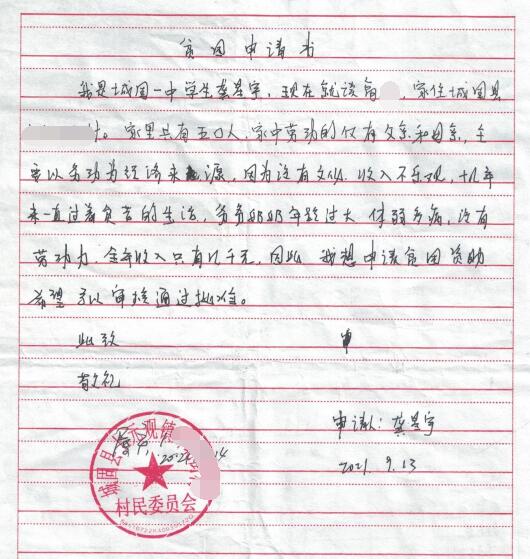 贫困申请书
我是城固一中学生龚星宇，现在就读高，家住城固县
村。家里共有五口人，家中劳动的仅有父亲和母亲，主
要以务功为经济来源，因为没有文化，收入不乐观，十几年
来一直过着贫苦的生活，爷爷奶奶年龄过大 体弱多病，没有
劳动力，全年收入只有几千元，因此 我想申请贫困资助
希望予以审核通过批准。
此致 申
敬礼
申请人：龚星宇
2021.9.13
城固县 观镇
村民委员会